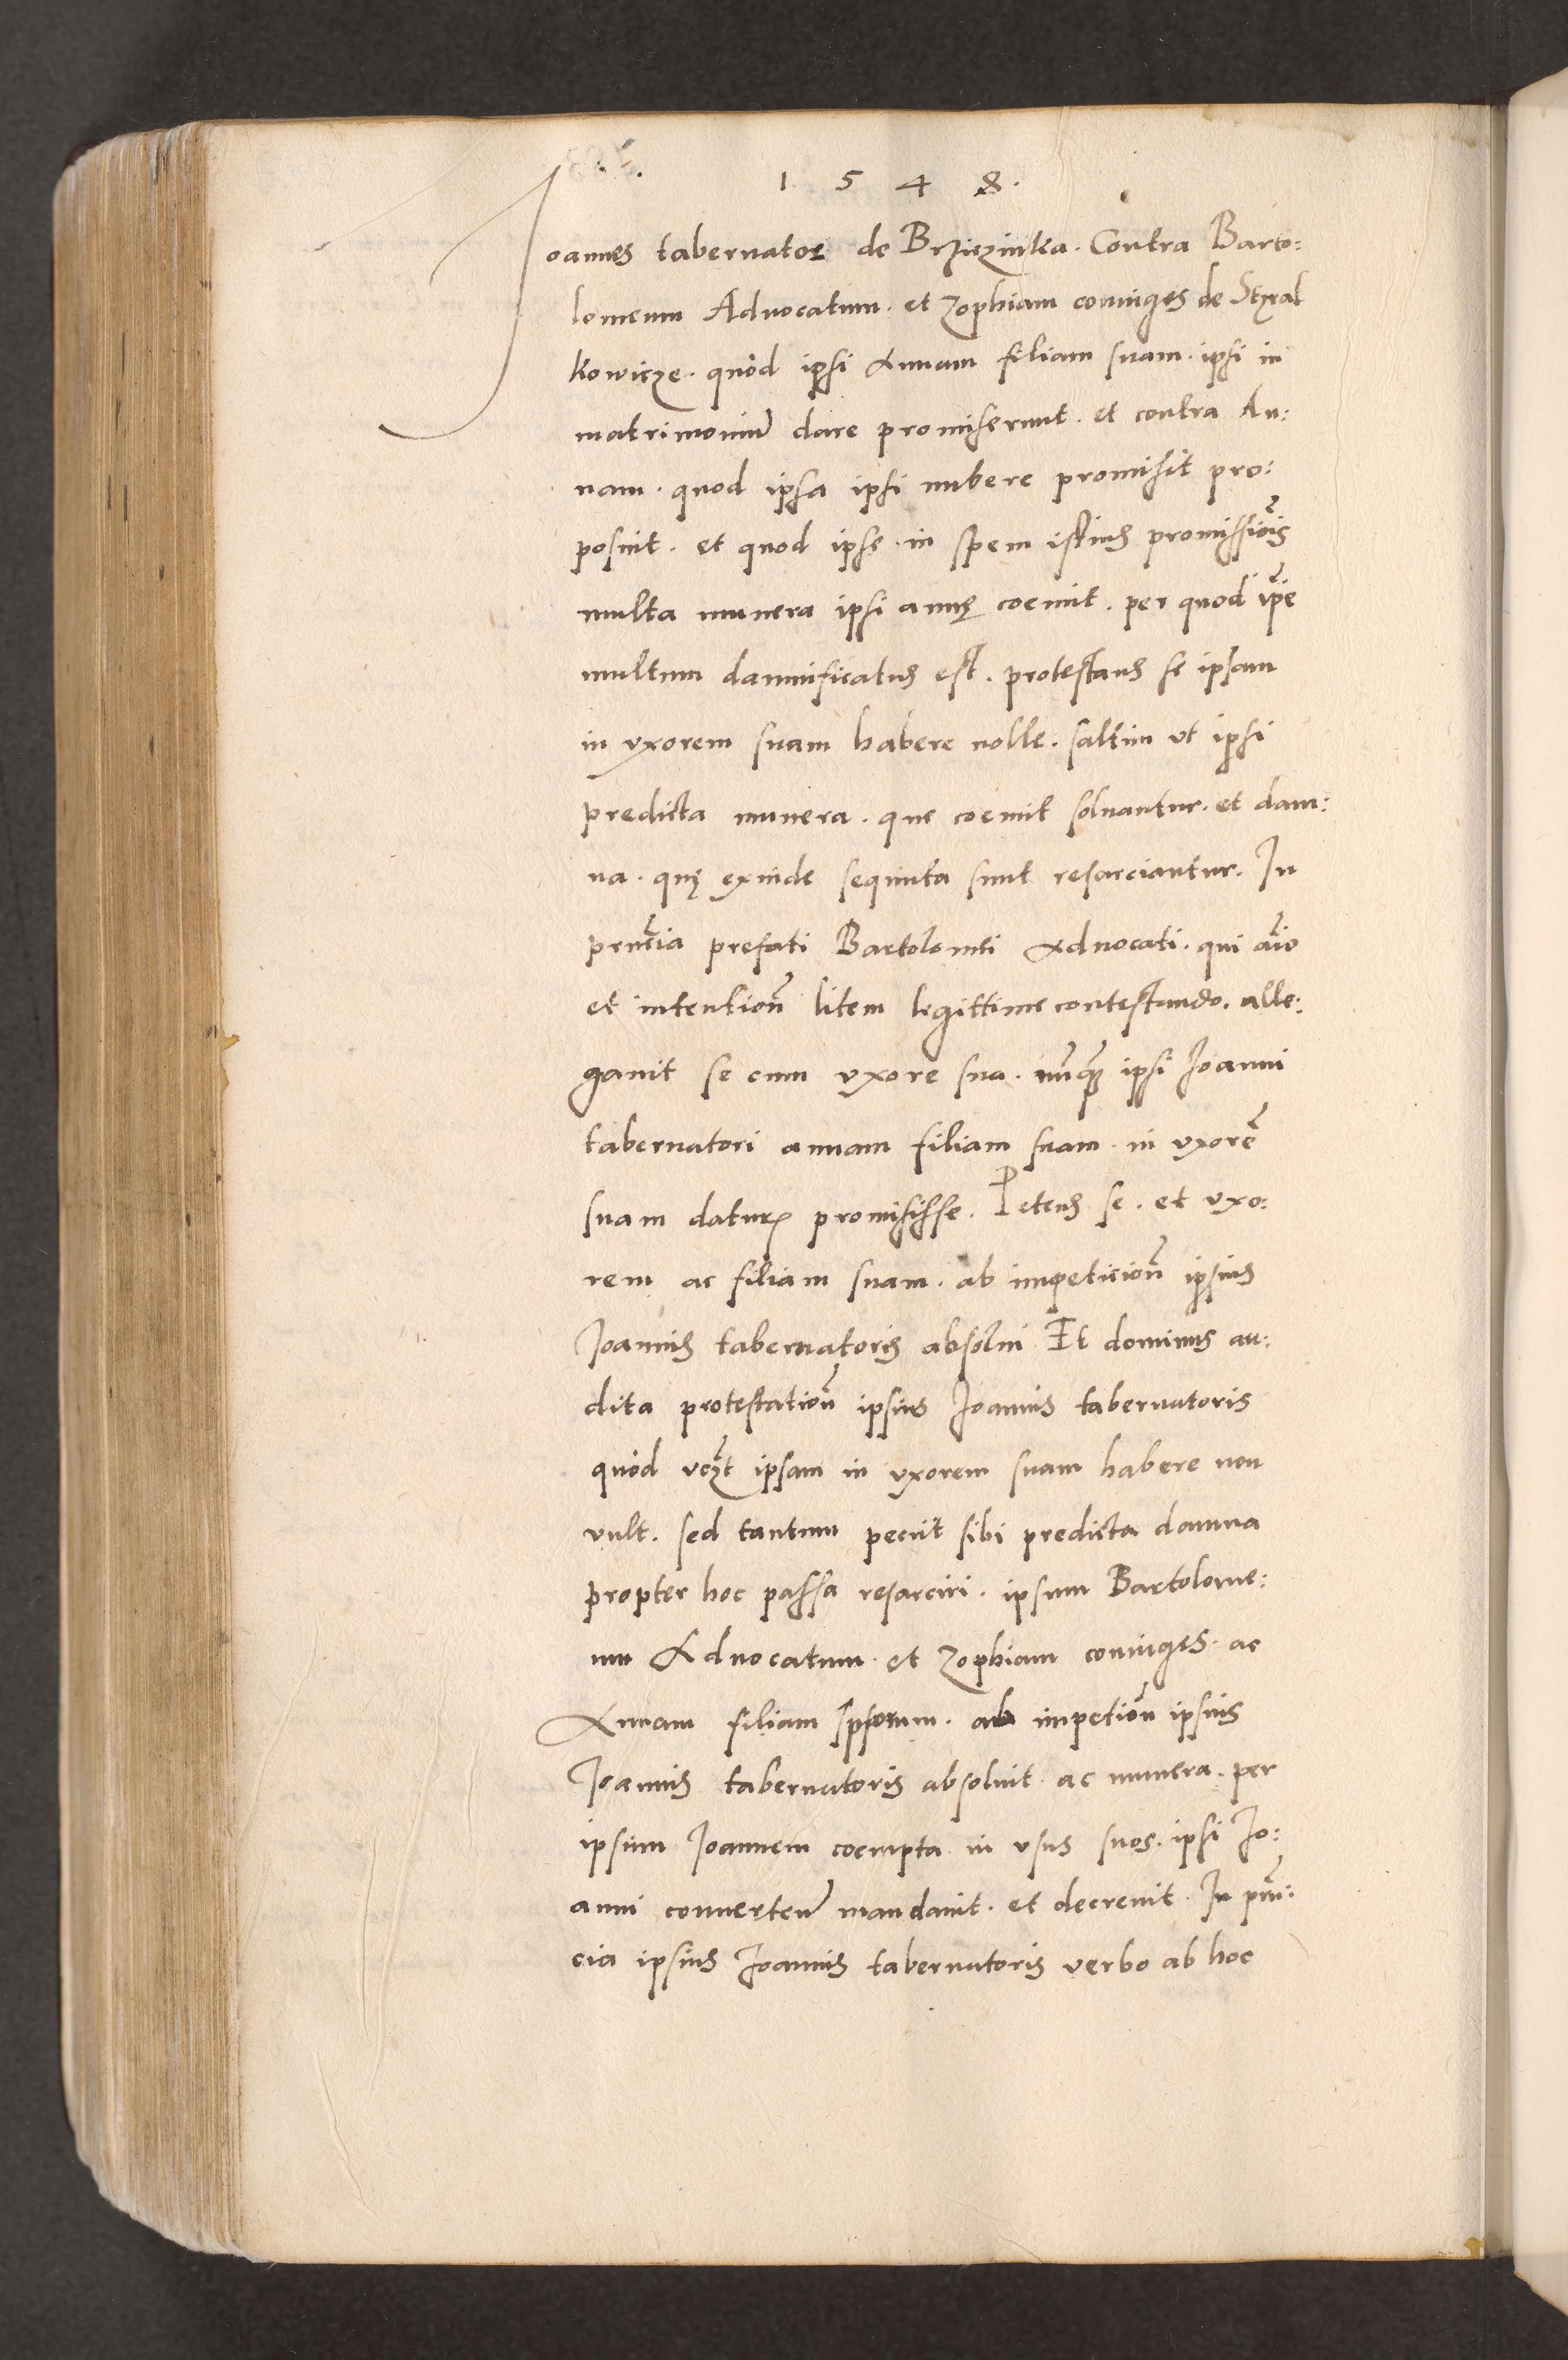 1 5 4 8.
Joannes tabernator de Brziezinka. Contra Barto:
lomeum Aduocatum. et Zophiam coniuges de Stral
kowicze. quod ipsi Annam filiam suam. ipsi in
matrimoniũ dare promiserunt. et contra An:
nam. quod ipsa ipsi nubere promisit pro:
posuit. et quod ipse in spem istius promissiõis
multa munera ipsi annę coemit. per quod ip̃e
multum damnificatus est. protestans se ipsam
in vxorem suam habere nolle. saltim vt ipsi
predicta munera. que coemit soluantur. et dam:
na. quę exinde sequuta sunt resarciantur. In
prñcia prefati Bartolomei Aduocati. qui aĩo
et intentioñ litem legittime contestando. alle:
gauit se cum vxore sua. nũq̃ ipsi Joanni
tabernatori annam filiam suam. in vxorẽ
suam datur promisisse. Petens se. et vxo:
rem ac filiam suam. ab impeticioñ ipsius
Joannis tabernatoris absolui Et dominus au:
dita protestatioñ ipsius Joannis tabernatoris
quod vcz̃t ipsam in vxorem suam habere non
vult. sed tantum peciit sibi predicta damna
propter hoc passa resarciri. ipsum Bartolome:
um Aduocatum. et Zophiam coniuges. ac
Annam filiam ipsorum. ab impetioñ ipsius
Joannis tabernatoris absoluit. ac munera. per
ipsum Joannem coempta in vsus suos. ipsi Jo:
anni conuerteñ mandauit. et decreuit. In pñ:
cia ipsius Joannis tabernatoris verbo ab hoc